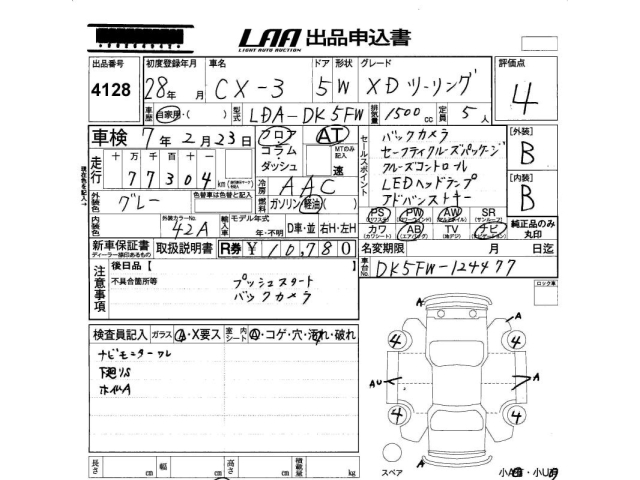 LAA 出品申込書
LIGHT AUTO AUCTION
出品番号 初度登録年月 車名 ドア 形状 グレード 評価点
4128 28年 月 CX-3 5 W XDツーリング 4
車歴 自家用・( ) 型式 LDA-DK5FW 排気量 1500 cc 定員 5人
車検 7年2月23日 フロア AT
コラム・ダッシュ MTのみ記入 速
走行 十万 万 千 百 十 一
77304 km
冷房 AAC
外装色 グレー 色替車は色替と記入
燃料 ガソリン 軽油( )
内装色 外装カラーNo. 42A 輸入車 モデル年式 年・不明 D車・並 右H・左H
新車保証書 取扱説明書 R券 ¥10,780
ディーラー捺印あるもの
セールスポイント
バックカメラ
セーフティクルーズパッケージ
クルーズコントロール
LEDヘッドランプ
アドバンストキー
[外装] B
[内装] B
PS PW AW SR
(パワステ) (パワーウインド) (アルミホイル) (サンルーフ)
カワ AB TV ナビ
(カワシート) (エアバッグ) (地デジ) (ナビゲーション)
純正品のみ丸印
名変期限 月 日迄
車台No. DK5FW-124477
注意事項 後日品 [
不具合箇所等
プッシュスタート
バックカメラ
ロック車
検査員記入 ガラス A・X要ス 室内シート A・コゲ・穴・汚れ・破れ
ナビモニターワレ
下廻りS
ホイルA
A A
4 4
AU A
4 4
A
スペア
長さ cm 幅 cm 高さ cm 積載量 kg